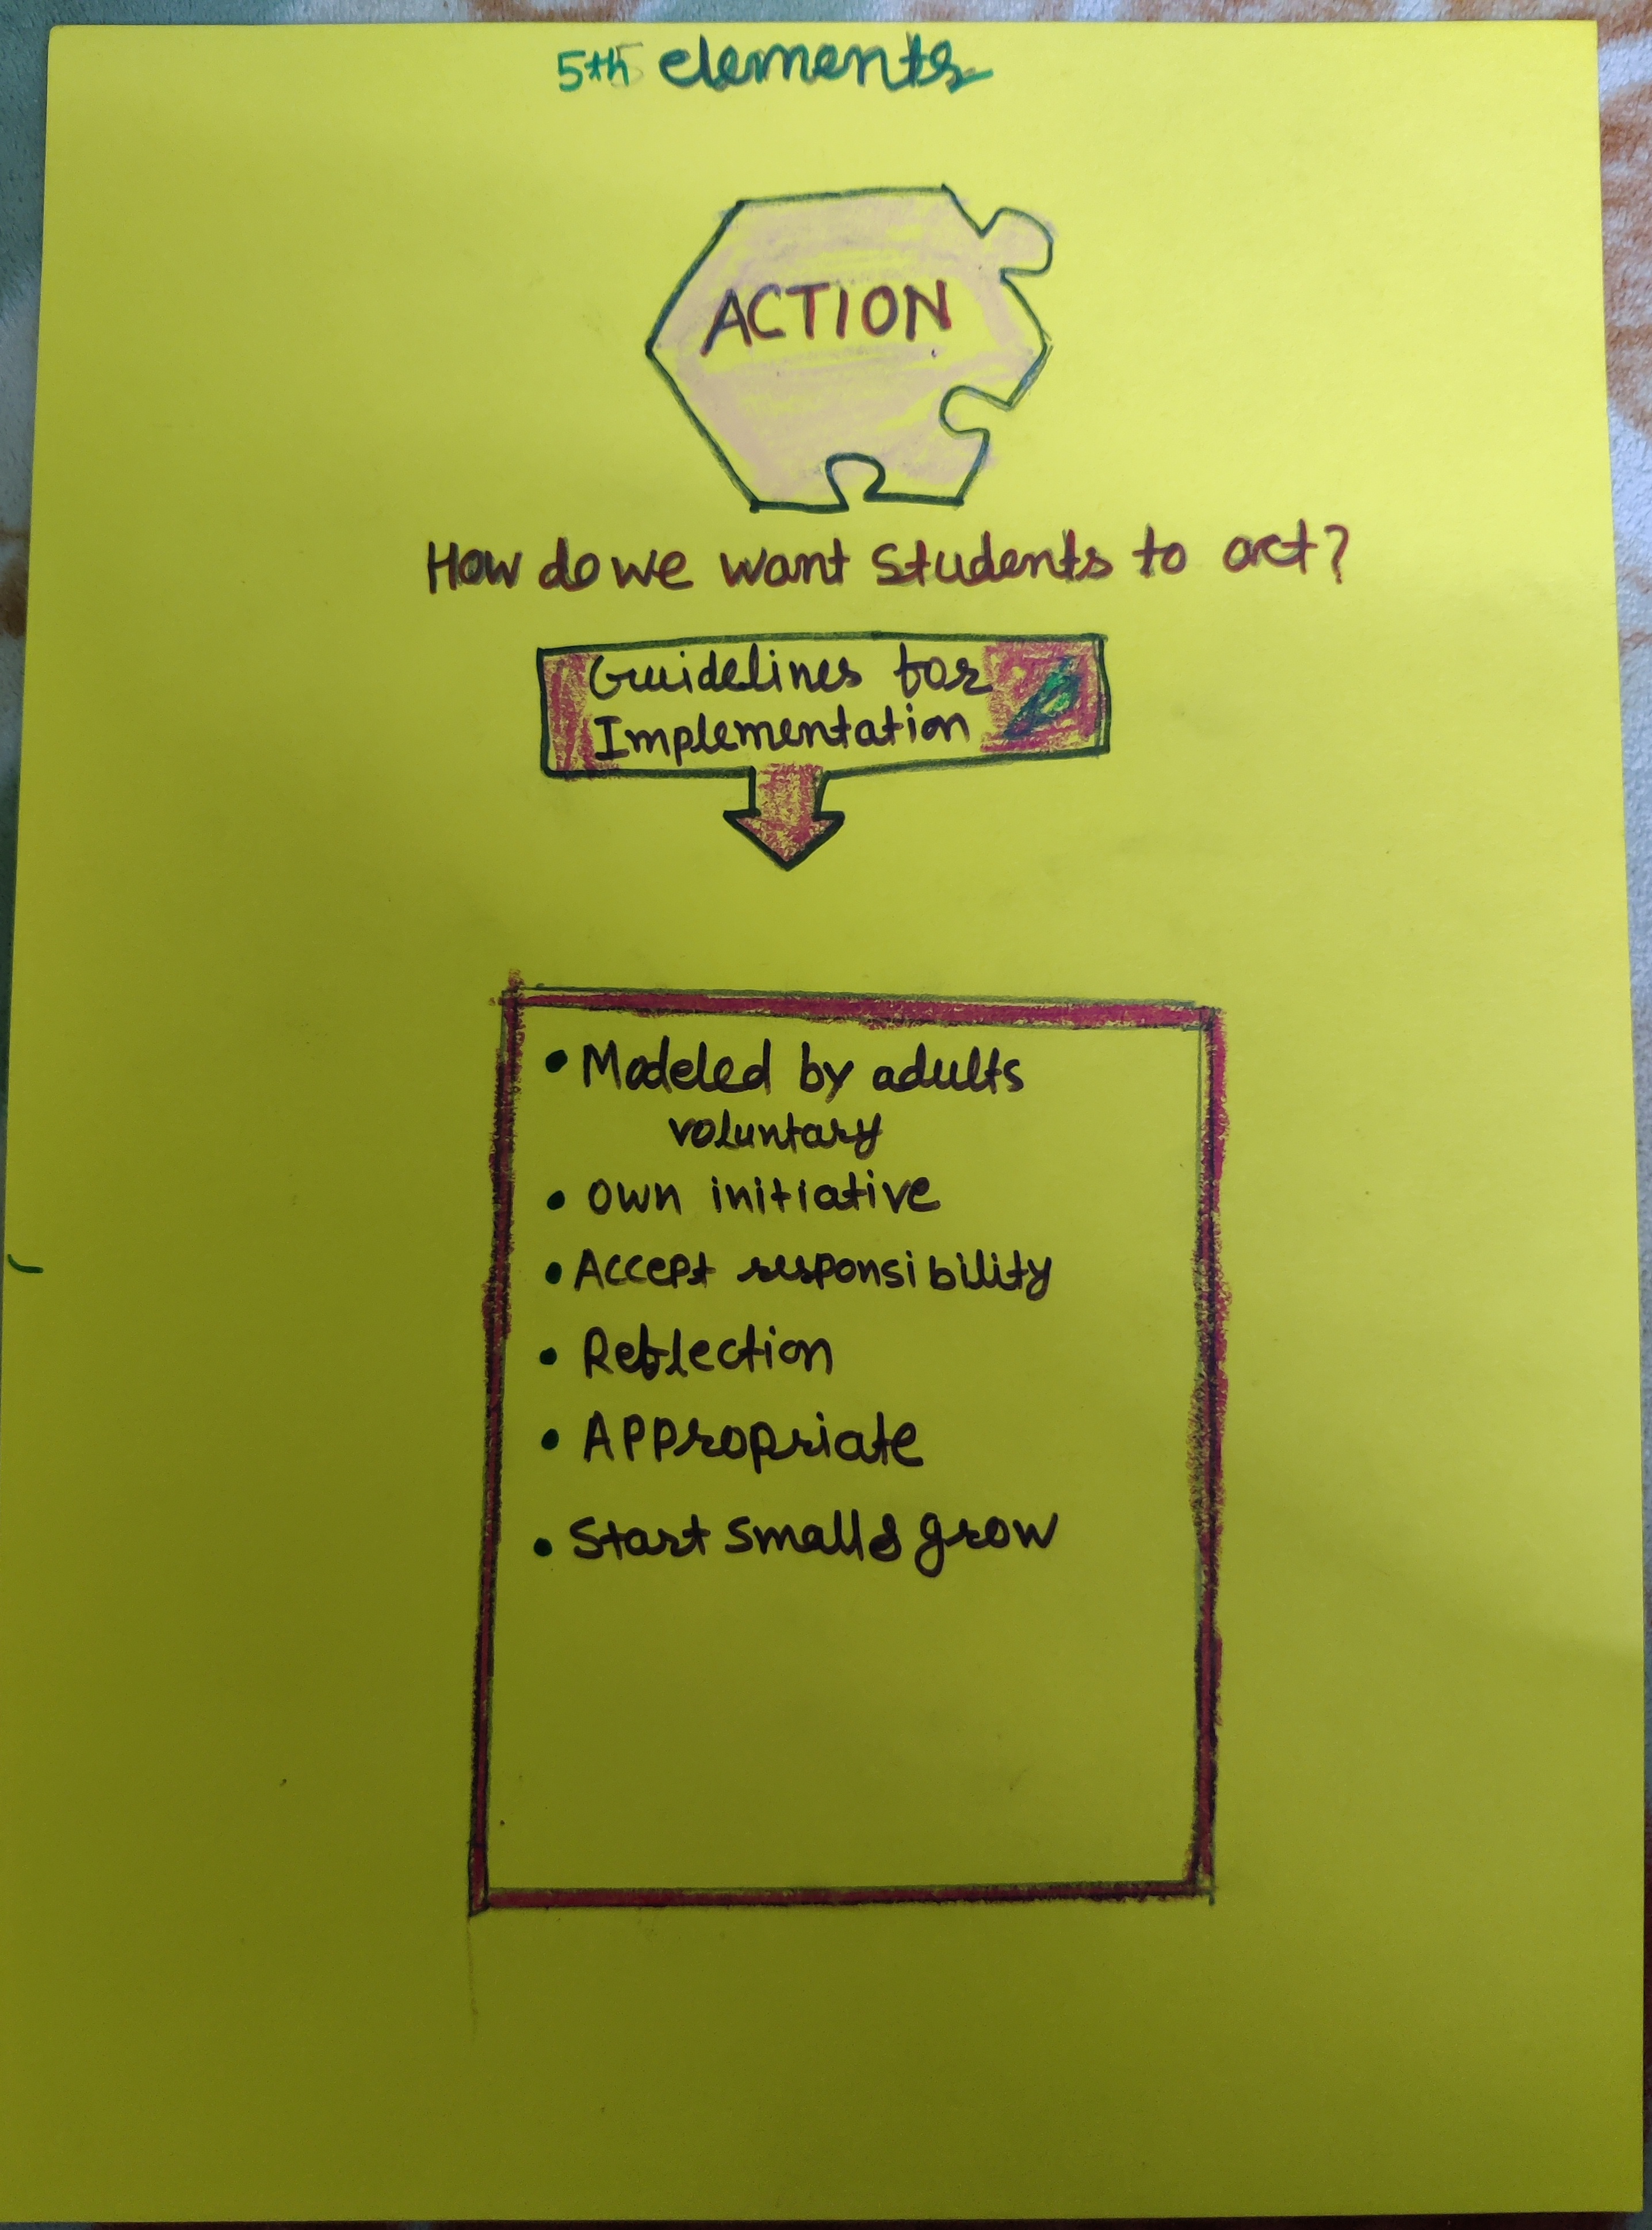 5th elements
ACTION
How do we want students to act?
Guidelines for
Implementation
• Modeled by adults
voluntary
• Own initiative
• Accept responsibility
• Reflection
• Appropriate
• Start small & grow